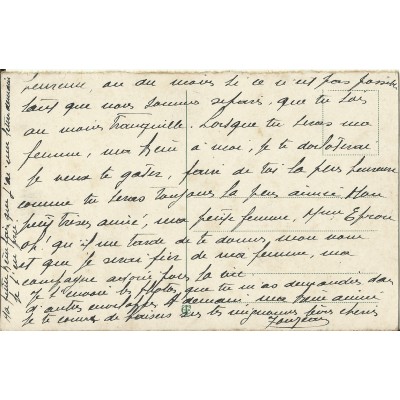 heureuse, ou du moins si ce n'est pas possible
tant que nous sommes séparés, que tu sois
au moins tranquille. Lorsque tu seras ma
femme, ma à moi, je te dorloterai
Je veux te gâter, faire de toi la plus heureuse
comme tu seras toujours la plus aimée. Mon
petit trésor aimé, ma petite femme, Mme
oh, qu'il me tarde de te donner mon nom
et que je serai fier de ma femme, ma
compagne pour la vie.
Je t'envoie les photos que tu m'as demandées dans
d'autres enveloppes. A demain ma aimée
Je te couvre de baisers tes mignonnes chéries